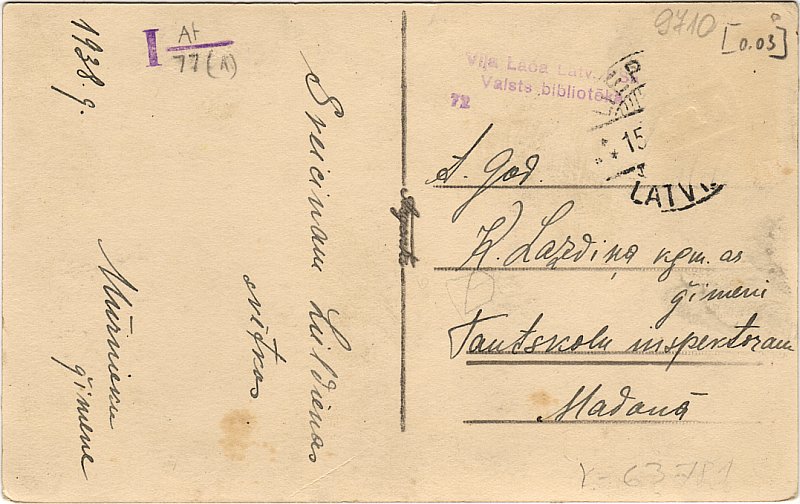 1938.g.
I Af
77(A)
Sveicinam Lieldienas
svētkos
Mūrnieku
ģimene
9710
[0.03]
Viļa Lāča Latv. PSR
Valsts bibliotēka
72
P
15
LATV
A. God.
K. Lazdiņa kgm. ar
ģimeni
Tautskolu inspektoram
Madonā
Y-63751